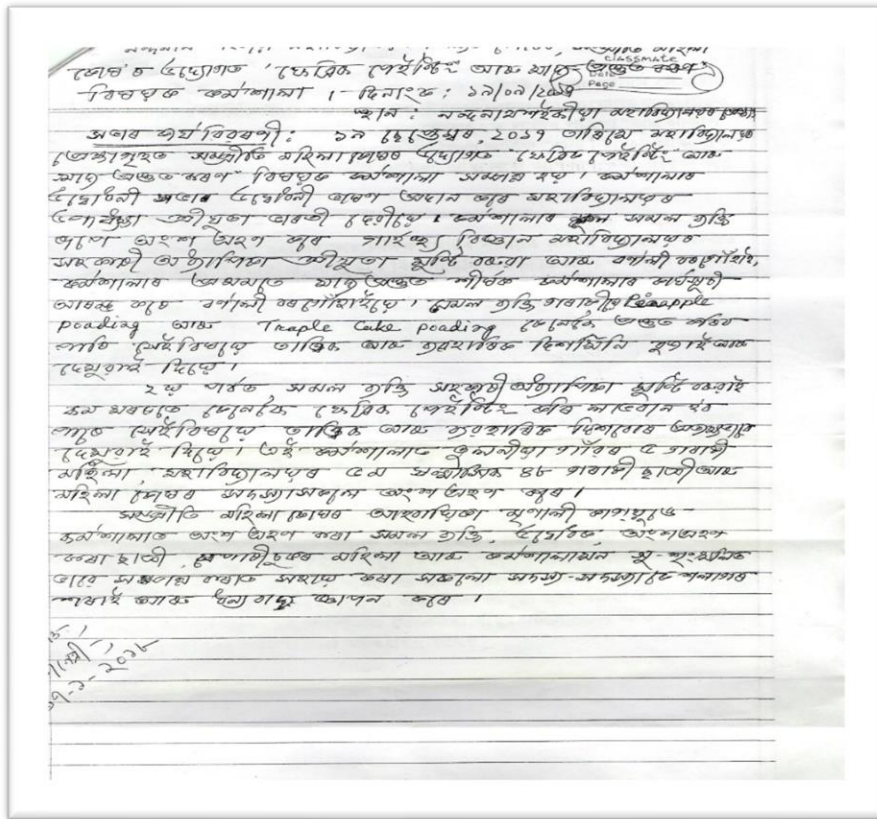 কোষৰ উদ্যোগত 'ফেব্ৰিক পেইন্টিং' আৰু খাদ্য প্ৰস্তুত কৰণ'
CLASSMATE
Date
Page
বিষয়ক কৰ্মশালা । দিনাংক : ১৯/০৯/২০১৭
স্থান : নন্দনাথ শইকীয়া মহাবিদ্যালয়ৰ
সভাৰ কাৰ্যবিৱৰণী : ১৯ ছেপ্তেম্বৰ, ২০১৭ তাৰিখে মহাবিদ্যালয়ৰ
প্ৰেক্ষাগৃহত সম্প্ৰীতি মহিলা কোষৰ উদ্যোগত 'ফেব্ৰিক পেইন্টিং' আৰু
খাদ্য প্ৰস্তুত কৰণ' বিষয়ক কৰ্মশালা সম্পন্ন হয় । কৰ্মশালাৰ
উদ্বোধনী সভাৰ উদ্বোধনী ভাষণ প্ৰদান কৰে মহাবিদ্যালয়ৰ
উপাধ্যক্ষা শ্ৰীযুতা ভাৰতী দেৱীয়ে । কৰ্মশালাৰ সমল ব্যক্তি
ৰূপে অংশ গ্ৰহণ কৰে গাৰ্হস্থ্য বিজ্ঞান মহাবিদ্যালয়ৰ
সহকাৰী অধ্যাপিকা শ্ৰীযুতা মুক্টি বৰুৱা আৰু বৰ্ণালী বৰগোঁহাই,
কৰ্মশালাৰ প্ৰথমতে খাদ্য প্ৰস্তুত শীৰ্ষক কৰ্মশালাৰ কাৰ্যসূচী
আৰম্ভ কৰে বৰ্ণালী বৰগোঁহাইয়ে । সমল ব্যক্তি গৰাকীয়ে Pineapple
poading আৰু Traple Cake poading কেনেকৈ প্ৰস্তুত কৰিব
পাৰি সেইবিষয়ে তাত্বিক আৰু ব্যৱহাৰিক দিশখিনি বুজাই আৰু
দেখুৱাই দিয়ে ।
২য় পৰ্বত সমল ব্যক্তি সহকাৰী অধ্যাপিকা বৰুৱাই
কম খৰচতে কেনেকৈ ফেব্ৰিক পেইন্টিং কৰি লাভবান হব
পাৰে সেইবিষয়ে তাত্বিক আৰু ব্যৱহাৰিক দিশবোৰ
দেখুৱাই দিয়ে । এই কৰ্মশালাত গাঁৱৰ ৫ গৰাকী
মহিলা, মহাবিদ্যালয়ৰ ৫ম ষান্মাসিকৰ ৪৮ গৰাকী ছাত্ৰী আৰু
মহিলা কোষৰ সদস্যাসকলে অংশ গ্ৰহণ কৰে ।
সম্প্ৰীতি মহিলা কোষৰ আহ্বায়িকা মৃণালী কাগযুঙে
কৰ্মশালাত অংশ গ্ৰহণ কৰা সমল ব্যক্তি, অংশগ্ৰহণ
কৰা ছাত্ৰী, মহিলা আৰু কৰ্মশালাখন সু-শৃংখলিত
ভাৱে সম্পন্ন কৰাত সহায় কৰা সকলো সদস্য-সদস্যাকে শলাগৰ
শৰাই আৰু ধন্যবাদ জ্ঞাপন কৰে ।